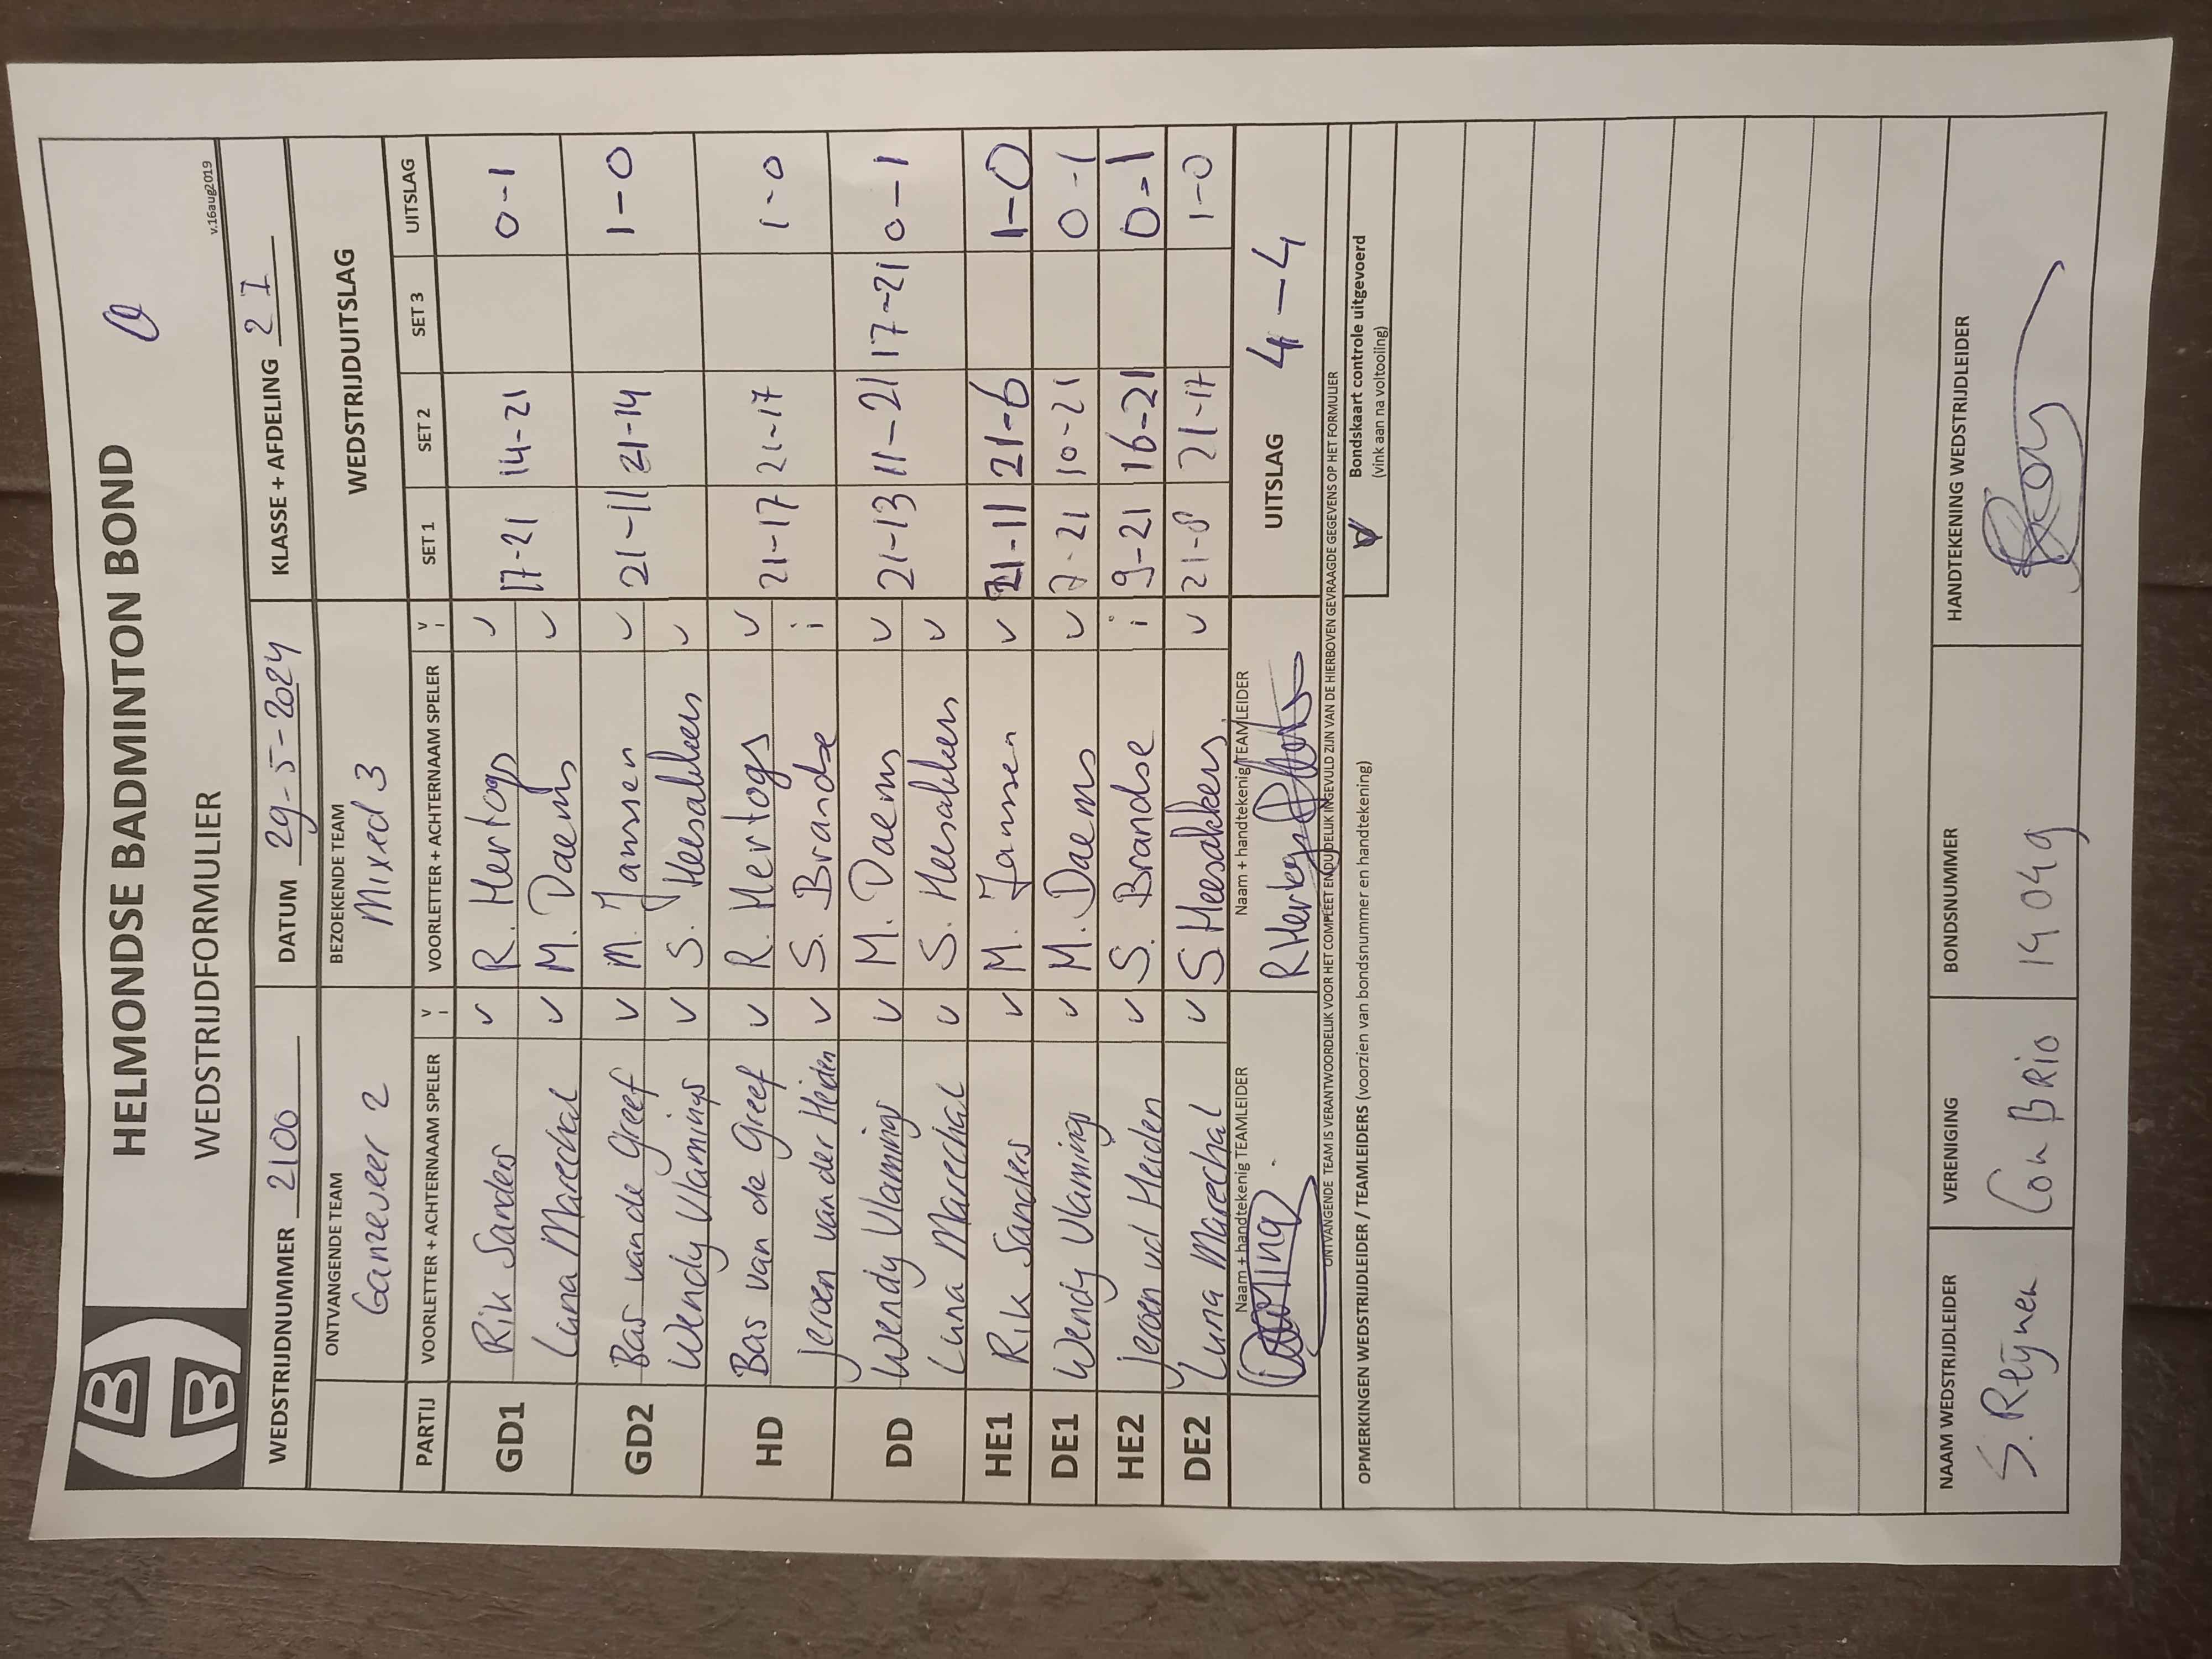 HELMONDSE BADMINTON BOND
WEDSTRIJDFORMULIER
v.16aug2019
WEDSTRIJDNUMMER 2100 DATUM 29-5-2024 KLASSE + AFDELING 2 I
ONTVANGENDE TEAM BEZOEKENDE TEAM WEDSTRIJDUITSLAG
Ganzeveer 2 Mixed 3
PARTIJ VOORLETTER + ACHTERNAAM SPELER v i VOORLETTER + ACHTERNAAM SPELER v i SET 1 SET 2 SET 3 UITSLAG
GD1 Rik Sanders v R. Hertogs v 17-21 14-21 0-1
Luna Marechal v M. Daems v
GD2 Bas van de Greef v M. Janssen v 21-11 21-14 1-0
Wendy Vlamings v S. Heesakkers v
HD Bas van de Greef v R. Hertogs v 21-17 21-17 1-0
Jeroen van der Heiden v S. Brandse i
DD Wendy Vlamings v M. Daems v 21-13 11-21 17-21 0-1
Luna Marechal v S. Heesakkers v
HE1 Rik Sanders v M. Janssen v 21-11 21-6 1-0
DE1 Wendy Vlamings v M. Daems v 7-21 10-21 0-1
HE2 Jeroen vd Heiden v S. Brandse i 9-21 16-21 0-1
DE2 Luna Marechal v S Heesakkers v 21-8 21-17 1-0
Naam + handtekenig TEAMLEIDER Naam + handtekenig TEAMLEIDER UITSLAG 4-4
R Hertogs
ONTVANGENDE TEAM IS VERANTWOORDELIJK VOOR HET COMPLEET EN DUIDELIJK INGEVULD ZIJN VAN DE HIERBOVEN GEVRAAGDE GEGEVENS OP HET FORMULIER
OPMERKINGEN WEDSTRIJDLEIDER / TEAMLEIDERS (voorzien van bondsnummer en handtekening)
v Bondskaart controle uitgevoerd
(vink aan na voltooiing)
NAAM WEDSTRIJDLEIDER VERENIGING BONDSNUMMER HANDTEKENING WEDSTRIJDLEIDER
S. Reijnen Con Brio 14049